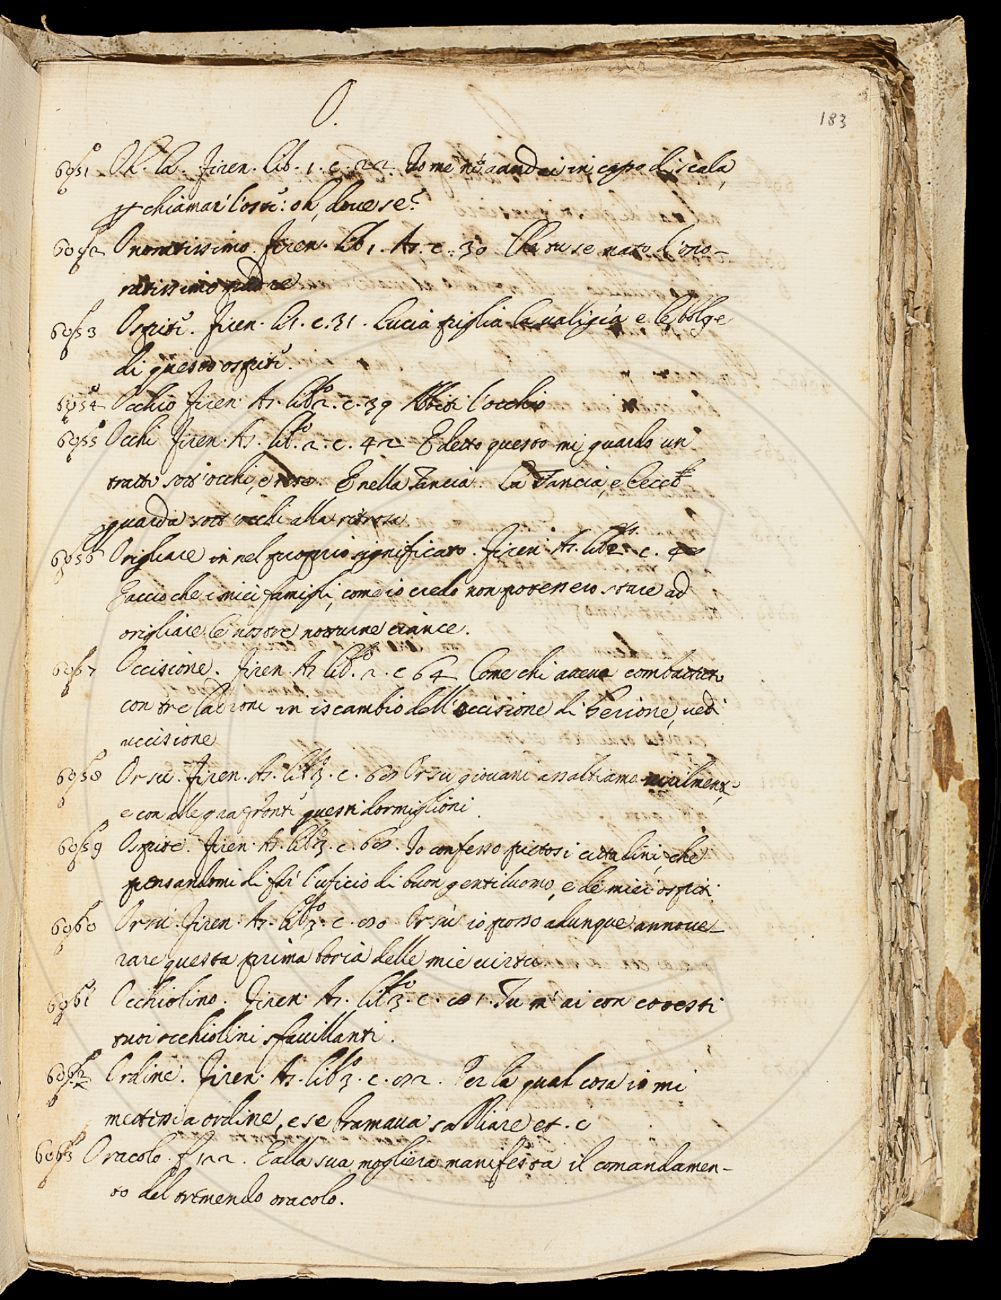 O.
183
6051 Oh là. Firen. lib. 1. c. 22. Io me n'andai in capo di scala,
et chiamai l'oste: oh, dove se?
6052 Onoratissimo. Firen. lib 1. As. c. 30 Che tu se nato d'ono-
ratissimo padre
6053 Ospite. Firen. li 1. c. 31. Lucia piglia la valigia e le bolge
di questo ospite.
6054 Occhio Firen. As. lib.o 2. c. 39 Abbiti l'occhio
6055 Occhi Firen. As. lib.o 2. c. 42 E detto questo mi guardò un
tratto sott'occhi, e rise. E nella Tancia. La Tancia, e Cecco
guarda sott'occhi alla ritrosa
6056 Origliare in nel proprio significato. Firen. As. lib 2. c. 48
Facciò che i miei famigli, come io credo non potessero stare ad
origliare le nostre notturne ciance.
6057 Occisione. Firen. As lib.o 2. c 64 Come chi aveva combattuto
con tre ladroni in iscambio dell'occisione di Gerione, vedi
uccisione
6058 Orsù. Firen. As. lib.o 3. c. 68 Orsù giovani assaltiamo virilmente,
e con allegra fronte questi dormiglioni.
6059 Ospite. Firen. As. lib.o 3. c. 68. Io confesso pietosi cittadini, che
pensandomi di far l'uficio di buon gentiluomo, e de miei ospiti
6060 Orsù. Firen. As. lib.o 3. c. 80 Orsù io posso adunque annove-
rare questa prima boria delle mie virtù
6061 Occhiolino. Firen. As. lib.o 3. c. 81. Tu m'ai con cotesti
tuoi occhiolini sfavillanti.
6062 Ordine. Firen. As. lib.o 3. c. 82. Per la qual cosa io mi
mettessi a ordine, e se bramava salliare et. c
6063 Oracolo. f 122. E alla sua mogliera manifesta il comandamen-
to del tremendo oracolo.